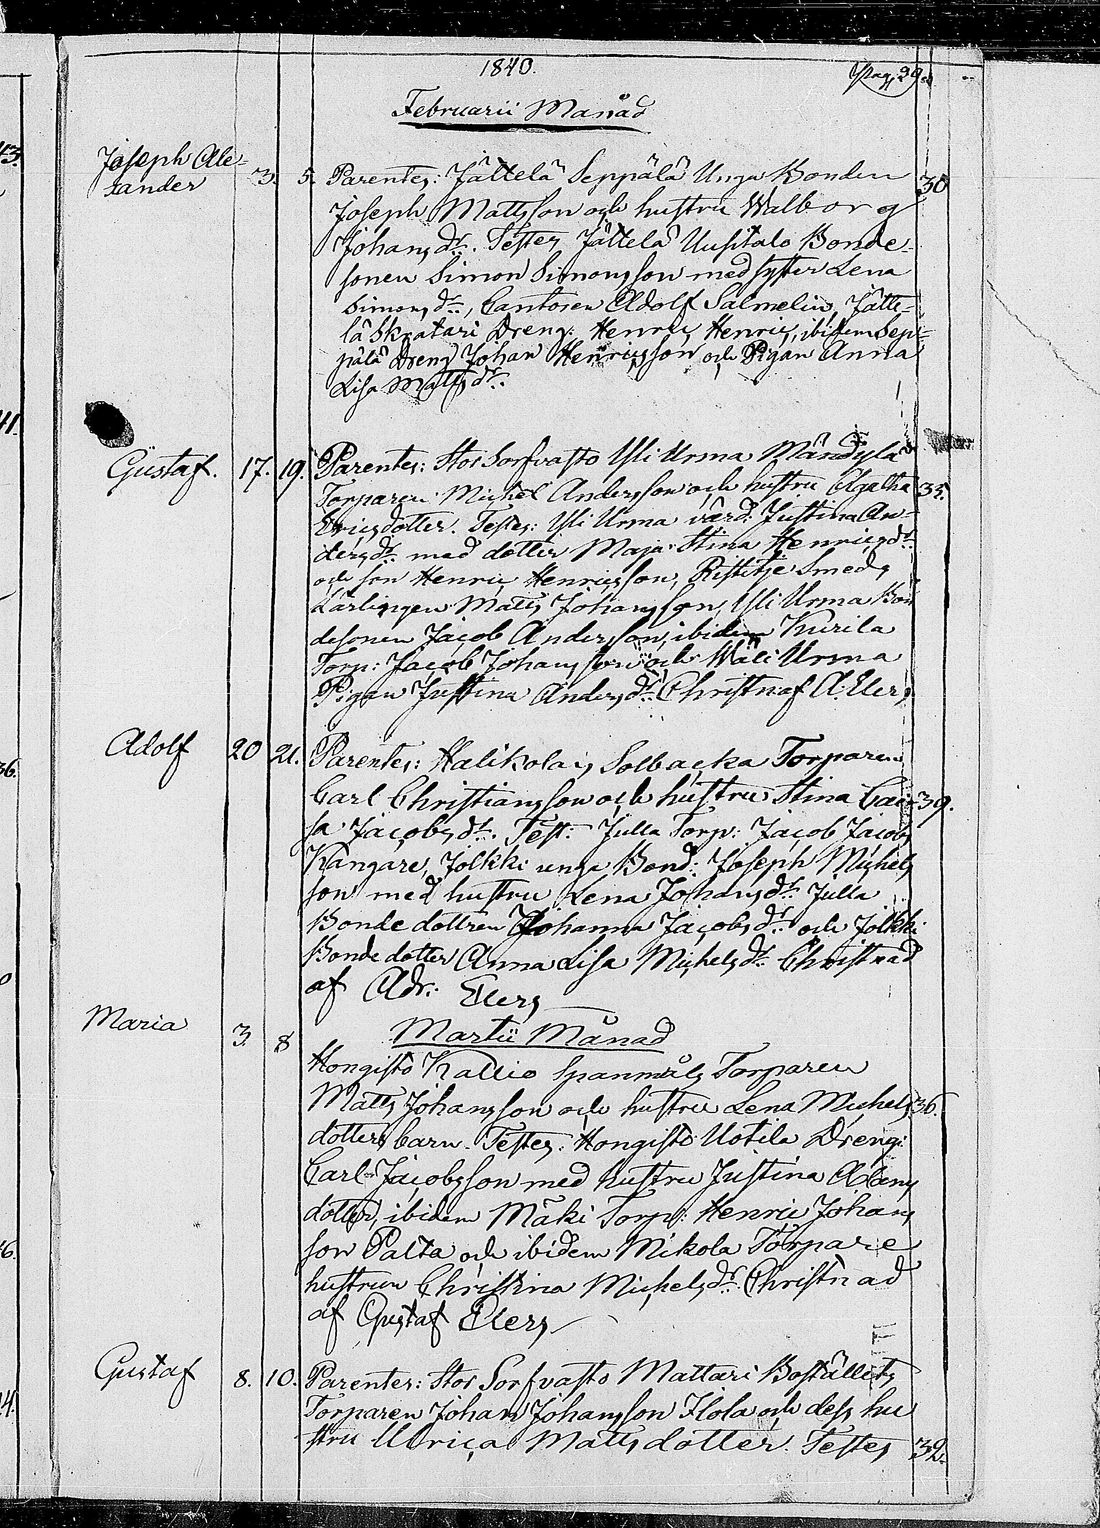 1840.
Pag. 29.
Februarii Månad
Joseph Ale-
xander
3. 5. Parentes: Jättelä Seppälä Unga Bonden 30
Joseph Mattsson och hustru Walborg
Johansdr. Testes Jättelä Uusitalo Bonde-
sonen Simon Simonsson med syster Lena
Simonsdr., Cantoren Adolf Salmelin, Jätte-
lä Skratari Dreng: Henric Henrics, ibidem Sep-
pälä Dreng Johan Henricsson och Pigan Anna
Lisa Mattsdr.
Gustaf. 17. 19. Parentes: Stor Sorfvasto Yli Urma Mändylä
Torparen Michel Andersson och hustru Agatha 35.
Ericsdotter. Testes: Yli Urma värd: Justina An-
dersdr. med dotter Maja Stina Henricsdr.
och son Henric Henricsson, Smeds
Lärlingen Matts Johansson, Yli Urma Bon
desonen Jacob Andersson, ibidem Kurila
Torp: Jacob Johansson och Wäli Urma
Pigan Justina Andersdr. Christn af A. Elers
Adolf 20 21. Parentes: Halikolais Solbacka Torparen
Carl Christiansson och hustru Stina Cai- 39.
sa Jacobsdr. Test: Julla Torp: Jacob Jacobs
Kangare, Jolkki unga Bond: Joseph Michels
son med hustru Lena Johansdr. Julla
Bonde dottren Johanna Jacobsdr. och Jolkki
Bonde dotter Anna Lisa Michelsdr. Christnad
af Adr: Elers
Maria 3. 8 Martii Månad
Hongisto Kallio Spanmåls Torparen
Matts Johansson och hustru Lena Michels 36.
dotters barn. Testes: Hongisto Uotila Dreng:
Carl Jacobsson med hustru Justina Adams
dotter, ibidem Mäki Torp: Henric Johans
son Palta och ibidem Mikola Torpare
hustrun Christina Michelsdr. Christnad
af Gustaf Elers
Gustaf 8. 10. Parentes: Stor Sorfvasto Mattari Boställets
Torparen Johan Johansson Ilola och dess hu
stru Ulrica Mattsdotter. Testes 32.